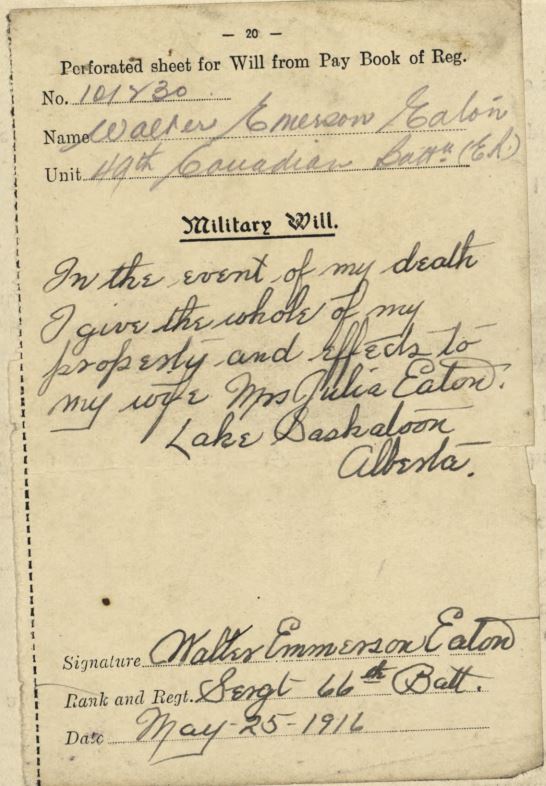 — 20 —
Perforated sheet for Will from Pay Book of Reg.
No. 101230
Name Walter Emerson Eaton
Unit 49th Canadian Battn (E.R)
Military Will.
In the event of my death
I give the whole of my
property and effects to
my wife Mrs Julia Eaton.
Lake Saskatoon
Alberta.
Signature Walter Emmerson Eaton
Rank and Regt. Sergt 66th Batt.
Date May-25-1916